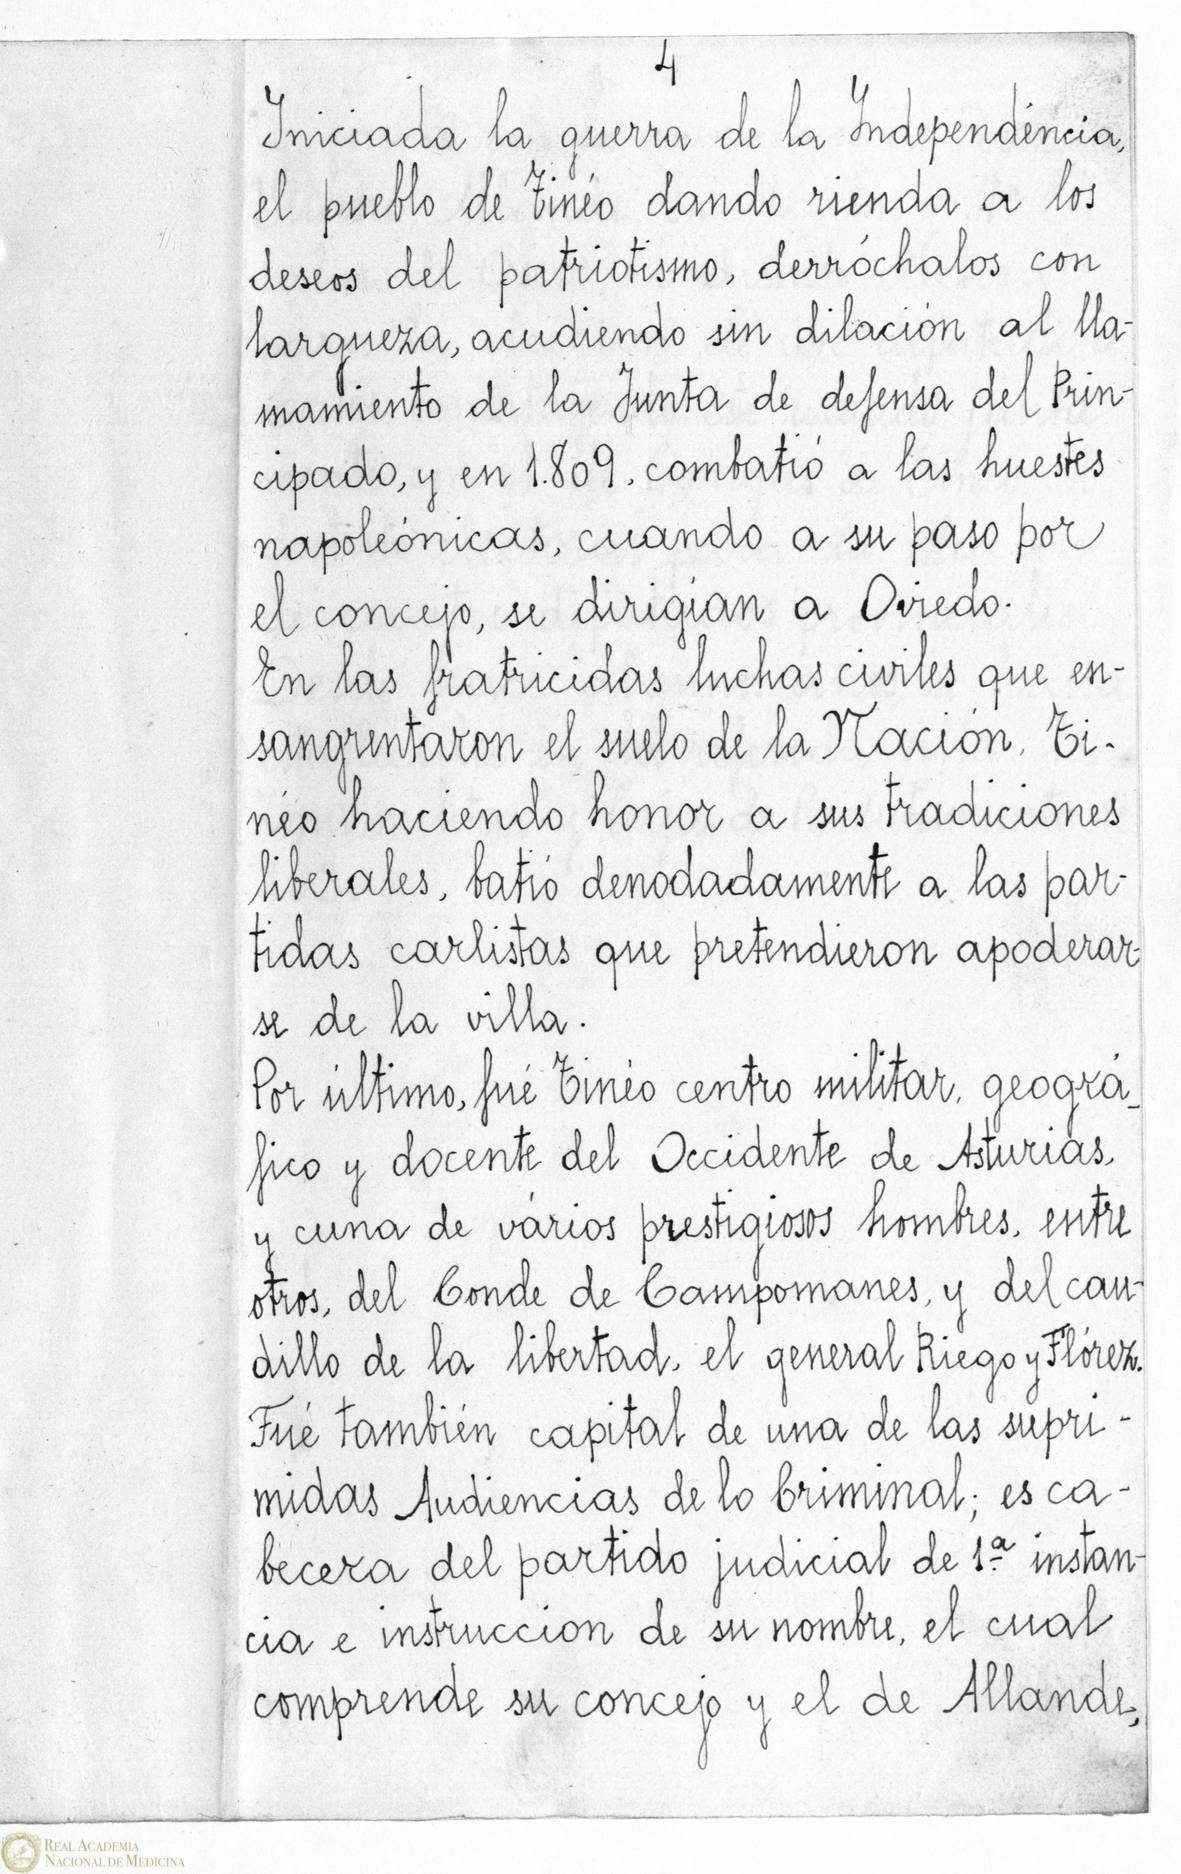 4
Iniciada la guerra de la Independéncia,
el pueblo de Tinéo dando rienda a los
deseos del patriotismo, derróchalos con
largueza, acudiendo sin dilación al lla-
mamiento de la Junta de defensa del Prin-
cipado, y en 1.809, combatió a las huestes
napoleónicas, cuando a su paso por
el concejo, se dirigían a Oviedo.
En las fratricidas luchas civiles que en-
sangrentaron el suelo de la Nación, Ti-
néo haciendo honor a sus tradiciones
liberales, batió denodadamente a las par-
tidas carlistas que pretendieron apoderar-
se de la villa.
Por último, fué Tinéo centro militar, geográ-
fico y docente del Occidente de Asturias,
y cuna de vários prestigiosos hombres, entre
otros, del Conde de Campomanes, y del cau-
dillo de la libertad, el general Riego y Flórez.
Fué también capital de una de las supri-
midas Audiencias de lo Criminal; es ca-
becera del partido judicial de 1ª instan-
cia e instruccion de su nombre, el cual
comprende su concejo y el de Allande,
REAL ACADEMIA
NACIONAL DE MEDICINA